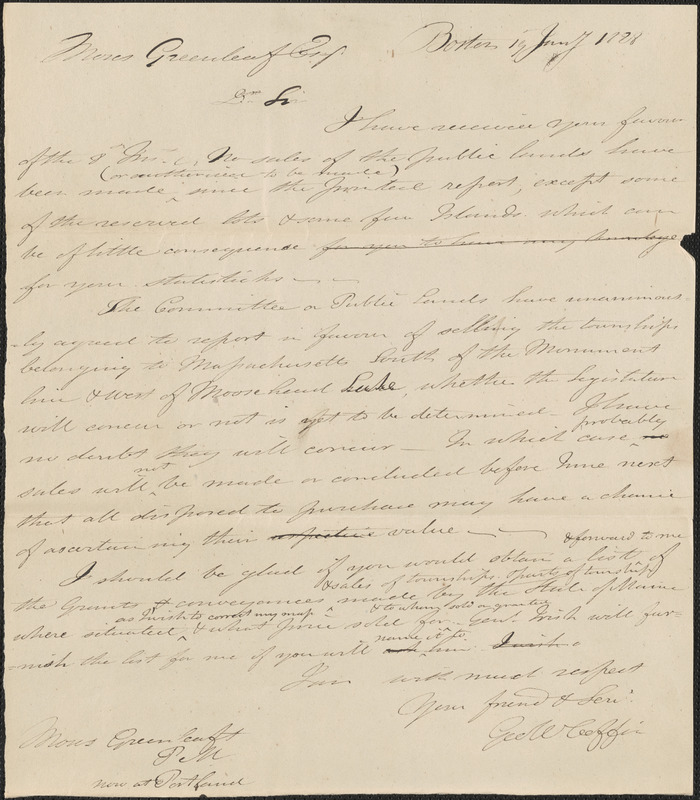 Moses Greenleaf Esq
Boston 19 Jany 1828
Dr Sir
I have received your favour
of the 8 Ins. No sales of the public lands have
(or authorised to be made)
been made since the printed report, except some
of the reserved lots & some few Islands which can
be of little consequence for you to have any knowledge
for your statisticks
The Committee on Public Lands have unanimous
-ly agreed to report in favour of selling the townships
belonging to Massachusetts South of the Monument
line & west of Moosehead Lake, whether the Legislature
will concur or not is yet to be determined - I have
no doubt they will concur - In which case no
probably
sales will not be made or concluded before June next
that all disposed to purchase may have a chance
of ascertaining their respective value
& forward to me
I should be glad if you would obtain a list of
& sales of townships & parts of townships
the Grants & conveyances made by the State of Maine
as I wish to correct my map & to whom sold or granted
where situated, & what price sold for. Genl Irish will fur-
name it to
-nish the list for me if you will ask him I wish
I am with much respect
Your friend & Servt
Geo W Coffin
Moses Greenleaf
P M
now at Portland